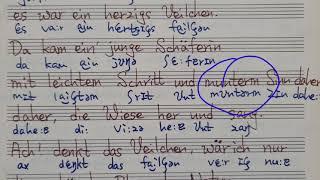 es war ein herzigs Veilchen.
ɛs vaːr a͜in hɛrtsɪçs fa͜ilçən
Da kam ein' junge Schäferin
da kam a͜in jʊŋə ʃɛːfərɪn
mit leichtem Schritt und munterm Sinn daher
mɪt la͜içtəm ʃrɪt ʊnt mʊntərm zɪn daheːɐ
daher, die Wiese her und sang.
daheːɐ diː viːzə heːɐ ʊnt zaŋ
Ach! denkt das Veilchen, wär ich nur
ax dɛŋkt das fa͜ilçən vɛːr ɪç nuːɐ